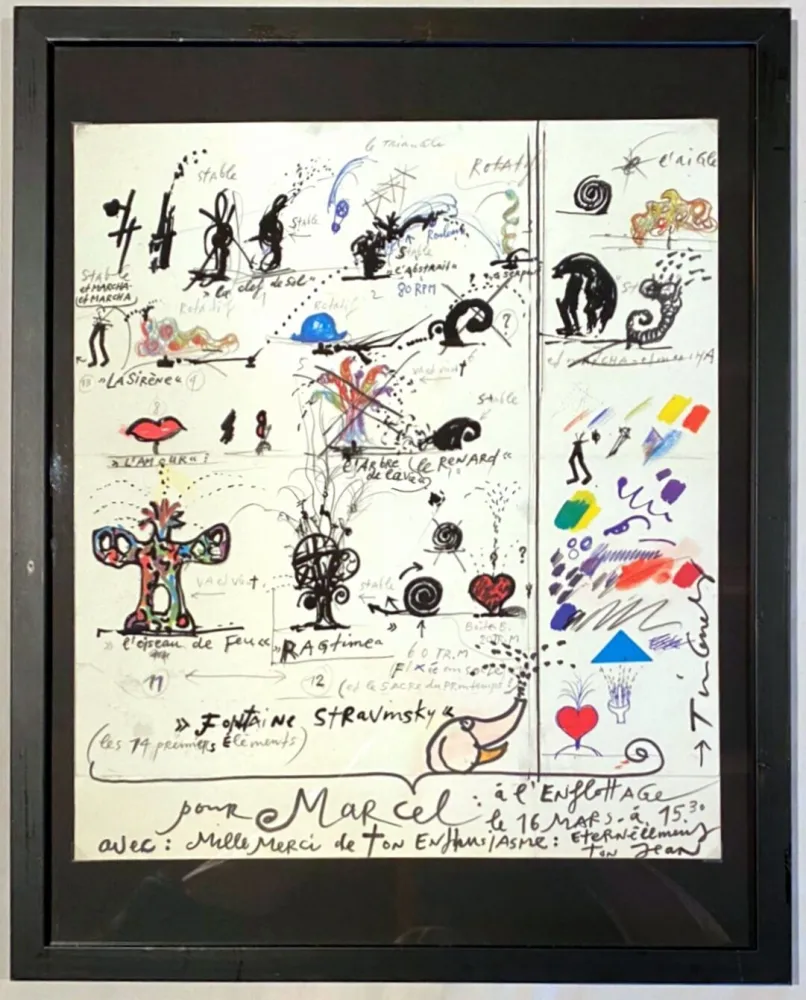 le Triangle
stable
Rotatif
l'aigle
Stable
Stable
"l'abstrait"
80 RPM
"la clef de Sol"
1
2
Stable
et MARCHA
et MARCHA
Rotatif
Rotatif
?
"LA SIRÈNE" 4
5
va et vient
stable
"L'AMOUR"
l'Arbre
de la vie
"le RENARD"
va et vient
stable
?
"l'oiseau de Feu"
"RAGtime"
60 TR.M
Fixée au sol
11
12
(et le SACRE du PRintemps)
» FONTAINE StRavinsky «
(les 14 premiers Éléments)
→ Tinguely
pour MARCEL : à l'EnflottAGe
le 16 MARS - à 15.30
avec : Mille Merci de ton Enthusiasme : Eternellment
ton Jean